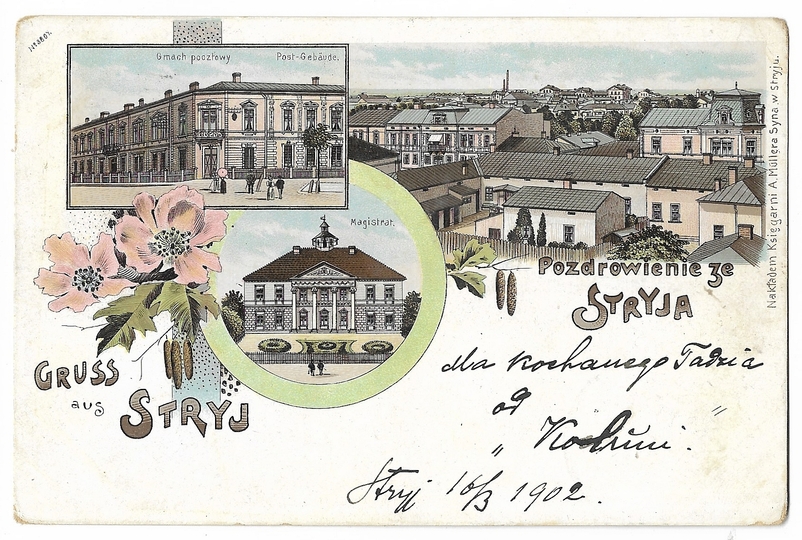 № 3807.
Gmach pocztowy Post-Gebäude.
Magistrat.
Nakładem Księgarni A. Müllera Syna w Stryju.
Pozdrowienie ze
STRYJA
GRUSS
aus
STRYJ
dla kochanego Tadzia
od "
"
Stryj 16/3 1902.